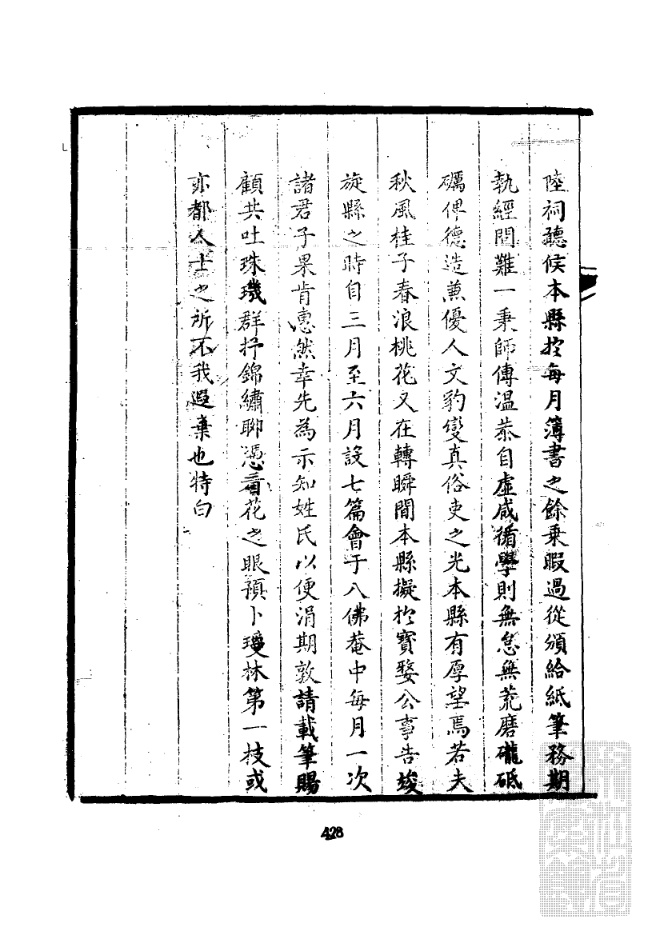 陸祠聽候本縣扵每月簿書之餘乘暇過從頒給紙筆務期
執經問難一秉師傳溫恭自虛咸循學則無怠無荒磨礲砥
礪俾德造蒹優人文豹變真俗吏之光本縣有厚望焉若夫
秋風桂子春浪桃花又在轉瞬間本縣擬扵寶婺公事告竣
旋縣之時自三月至六月設七篇會于八佛菴中每月一次
諸君子果肯惠然幸先為示知姓氏以便涓期敦請載筆賜
顧共吐珠璣群抒錦繡聊憑看花之眼預卜瓊林第一技或
亦都人士之所不我遐棄也特白
428